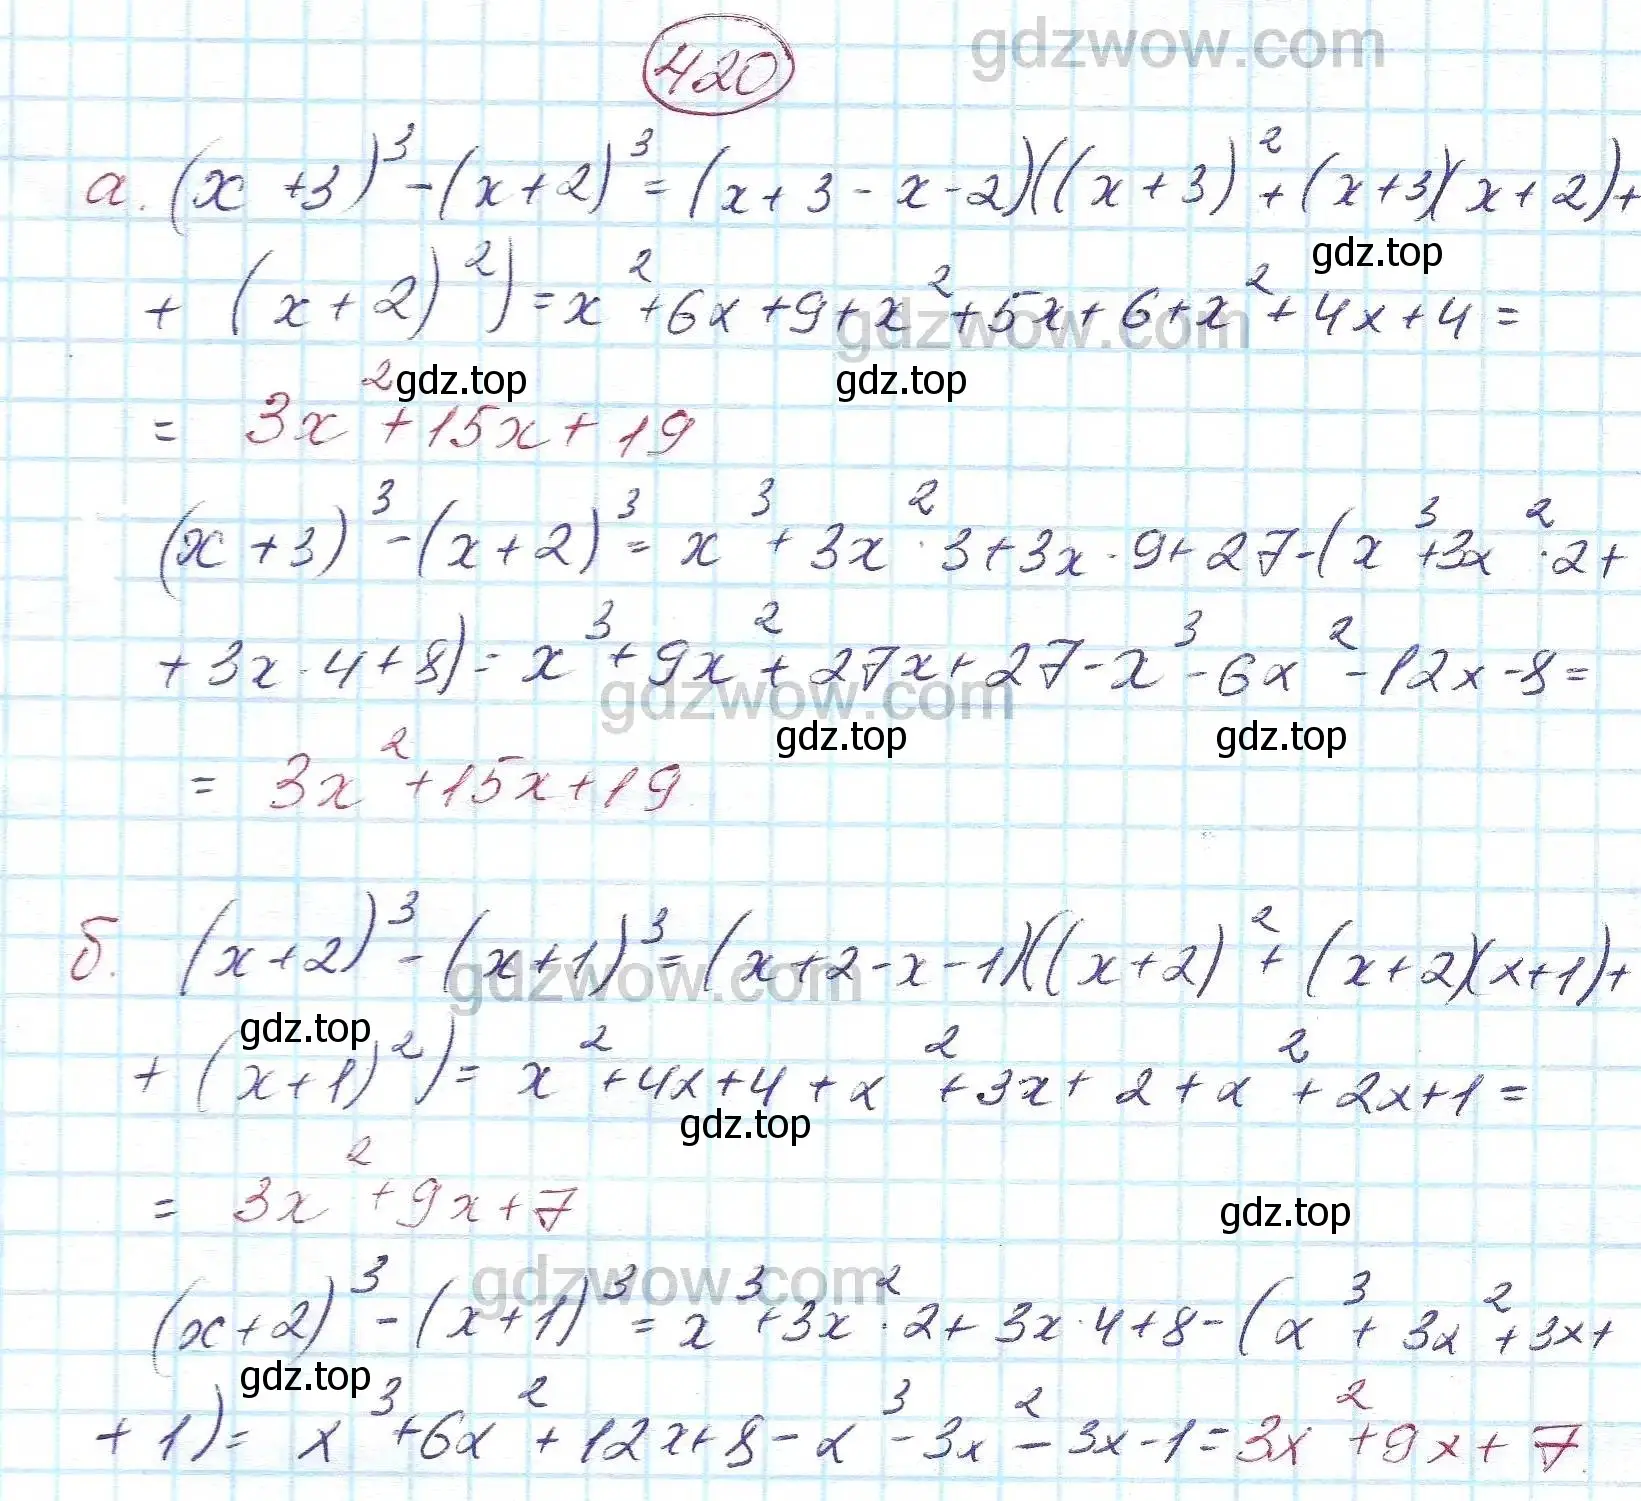 420
gdzwow.com
а. (x+3)³-(x+2)³=(x+3-x-2)((x+3)²+(x+3)(x+2)+
gdz.top
+(x+2)²)=x²+6x+9+x²+5x+6+x²+4x+4=
gdzwow.com
gdz.top gdz.top
= 3x²+15x+19
(x+3)³-(x+2)³=x³+3x²·3+3x·9+27-(x³+3x²·2+
+3x·4+8)=x³+9x²+27x+27-x³-6x²-12x-8=
gdzwow.com
gdz.top gdz.top
= 3x²+15x+19
б. (x+2)³-(x+1)³=(x+2-x-1)((x+2)²+(x+2)(x+1)+
gdzwow.com
gdz.top
+(x+1)²)=x²+4x+4+x²+3x+2+x²+2x+1=
gdz.top
= 3x²+9x+7
gdz.top
gdzwow.com
(x+2)³-(x+1)³=x³+3x²·2+3x·4+8-(x³+3x²+3x+
gdz.top
+1)=x³+6x²+12x+8-x³-3x²-3x-1=3x²+9x+7.